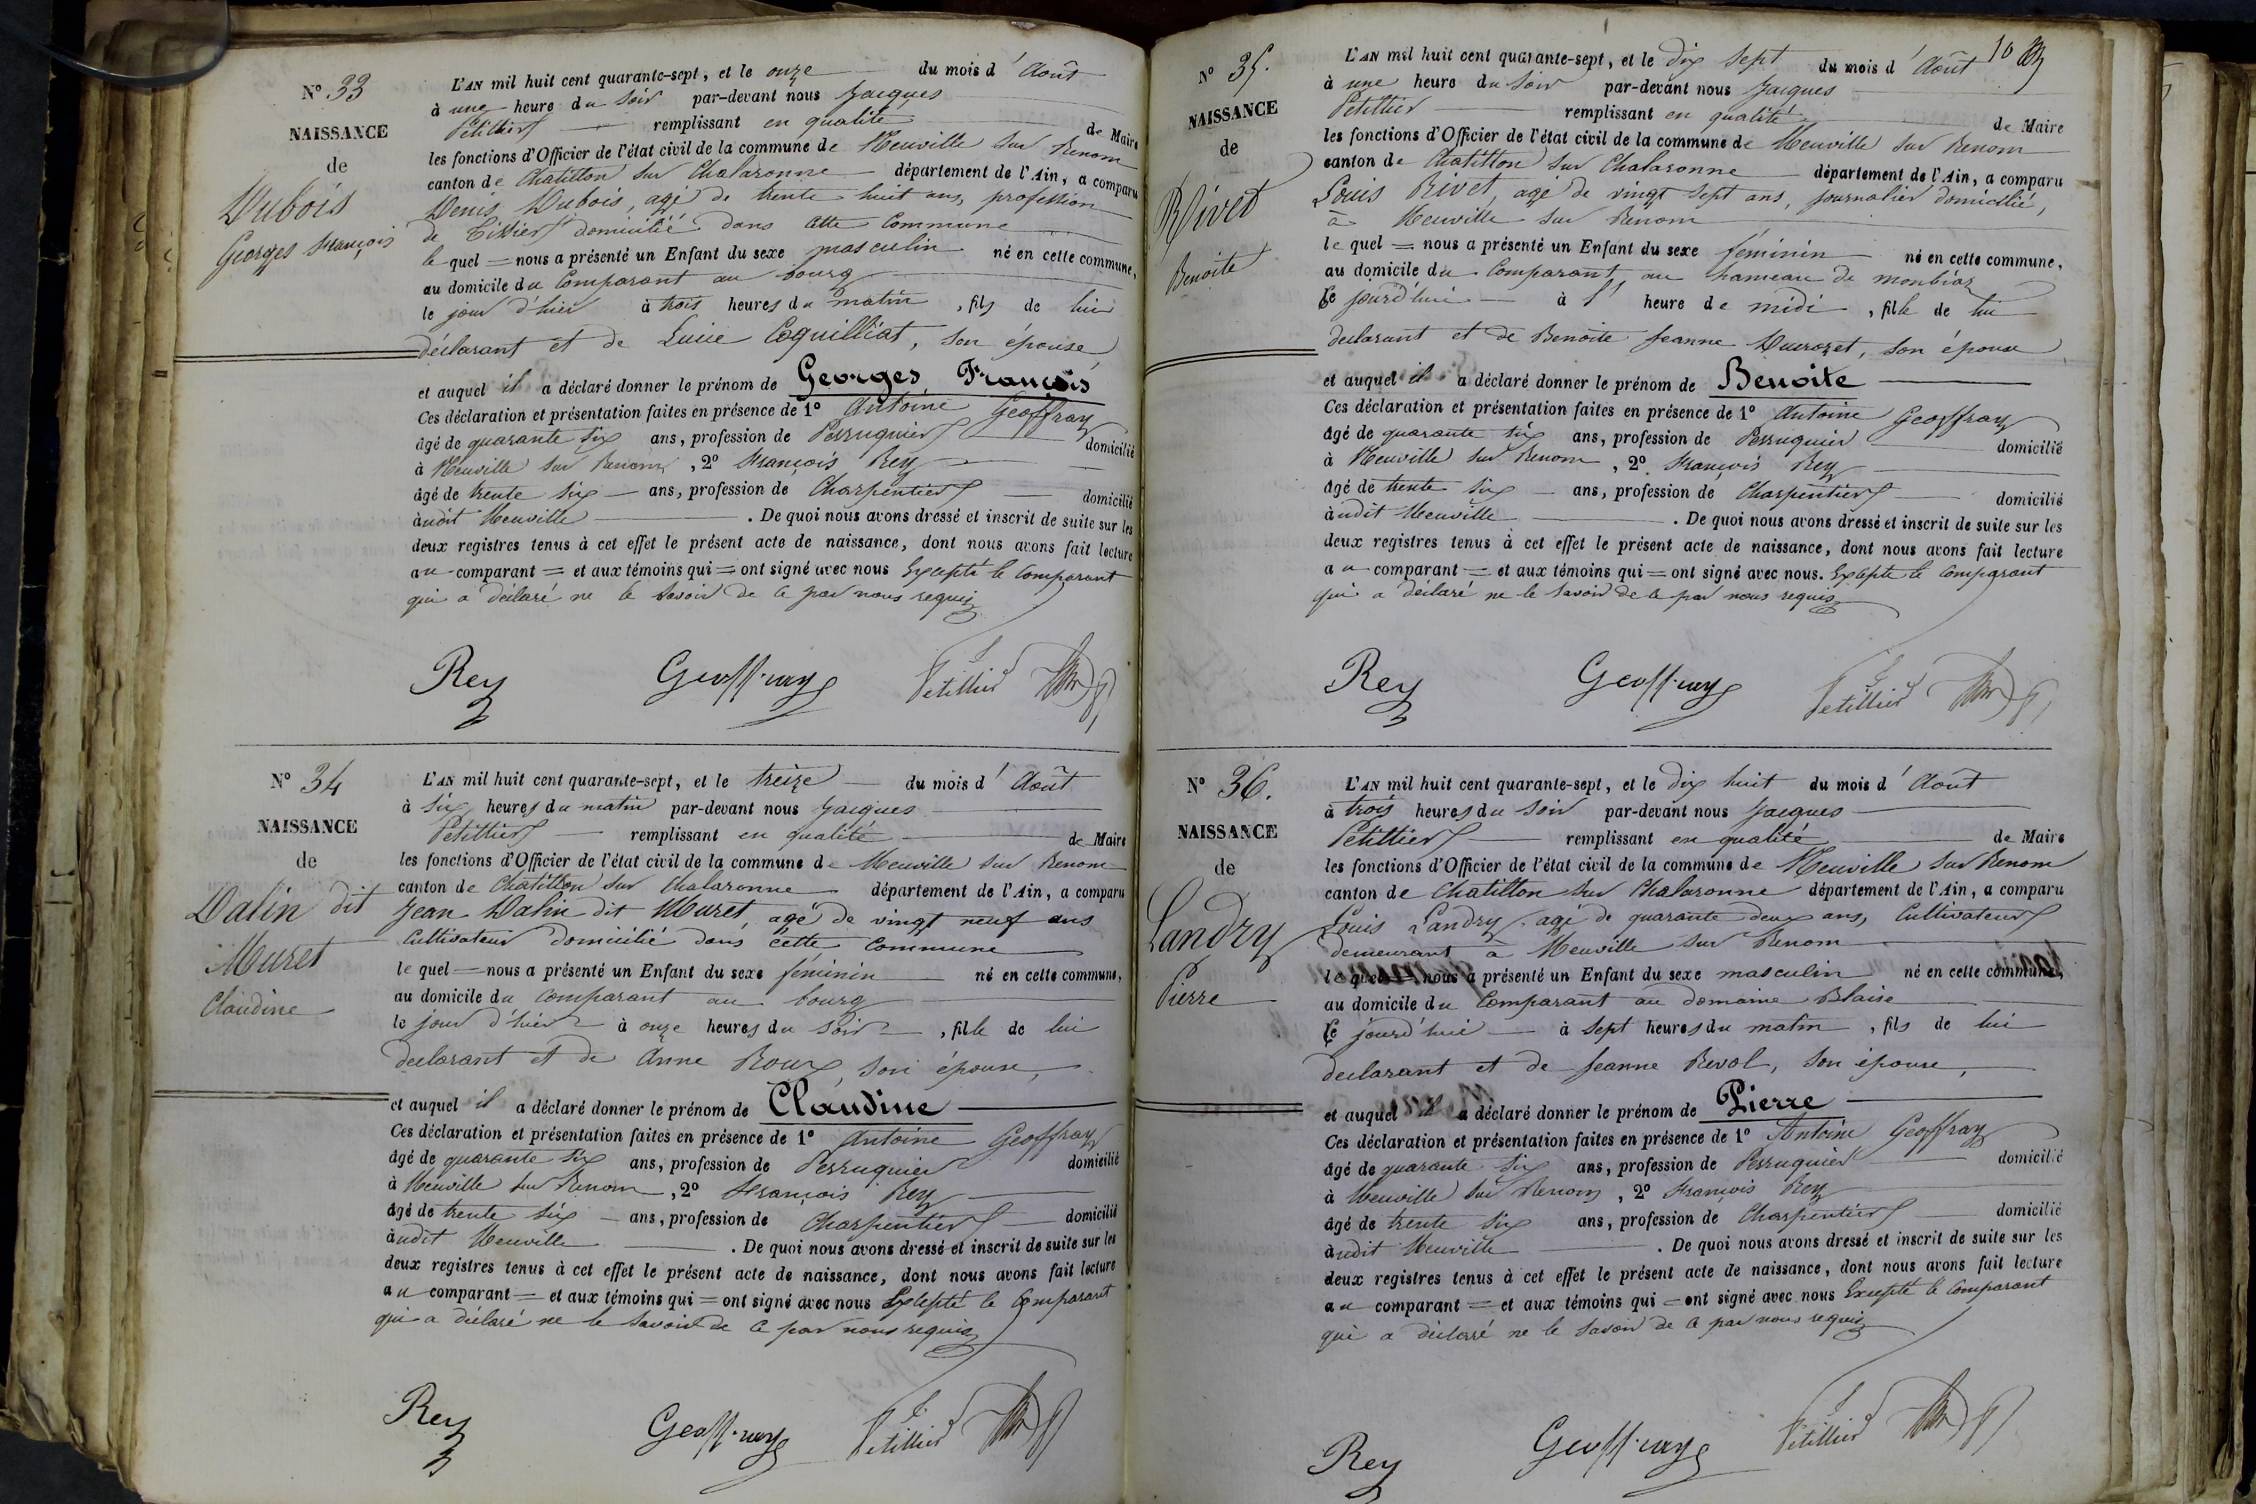 N° 33
NAISSANCE
de
Dubois
Georges François
L'AN mil huit cent quarante-sept, et le onze du mois d'Août
à une heure du soir par-devant nous Jacques
Petillier remplissant en qualité de Maire
les fonctions d'Officier de l'état civil de la commune de Neuville sur Renom
canton de Chatillon sur Chalaronne département de l'Ain, a comparu
Denis Dubois, agé de trente huit ans, profession
de Tissier domicilié dans cette commune
le quel = nous a présenté un Enfant du sexe masculin né en cette commune,
au domicile du Comparant au bourg
le jour d'hier à trois heures du matin, fils de lui
déclarant et de Lucie Coquilliat, son épouse
et auquel il a déclaré donner le prénom de Georges François
Ces déclaration et présentation faites en présence de 1° Antoine Geoffray
âgé de quarante six ans, profession de Perruquier domicilié
à Neuville sur Renom, 2° François Rey
âgé de trente six ans, profession de Charpentier domicilié
audit Neuville. De quoi nous avons dressé et inscrit de suite sur les
deux registres tenus à cet effet le présent acte de naissance, dont nous avons fait lecture
au comparant = et aux témoins qui = ont signé avec nous Excepté le Comparant
qui a déclaré ne le savoir de ce par nous requis
Rey Geoffray Petillier
N° 34
NAISSANCE
de
Dalin dit
Muret
Claudine
L'AN mil huit cent quarante-sept, et le treize du mois d'Août
à six heures du matin par-devant nous Jacques
Petillier remplissant en qualité de Maire
les fonctions d'Officier de l'état civil de la commune de Neuville sur Renom
canton de Chatillon sur Chalaronne département de l'Ain, a comparu
Jean Dalin dit Muret agé de vingt neuf ans
Cultivateur domicilié dans cette commune
le quel = nous a présenté un Enfant du sexe féminin né en cette commune,
au domicile du Comparant au bourg
le jour d'hier à onze heures du soir, fille de lui
declarant et de Anne Roux, son épouse,
et auquel il a déclaré donner le prénom de Claudine
Ces déclaration et présentation faites en présence de 1° Antoine Geoffray
âgé de quarante six ans, profession de Perruquier domicilié
à Neuville sur Renom, 2° François Rey
âgé de trente six ans, profession de Charpentier domicilié
audit Neuville. De quoi nous avons dressé et inscrit de suite sur les
deux registres tenus à cet effet le présent acte de naissance, dont nous avons fait lecture
au comparant = et aux témoins qui = ont signé avec nous Excepté le Comparant
qui a déclaré ne le savoir de ce par nous requis
Rey Geoffray Petillier
10
N° 35.
NAISSANCE
de
Rivet
Benoite
L'AN mil huit cent quarante-sept, et le dix sept du mois d'Août
à une heure du soir par-devant nous Jacques
Petillier remplissant en qualité de Maire
les fonctions d'Officier de l'état civil de la commune de Neuville sur Renom
canton de Chatillon sur Chalaronne département de l'Ain, a comparu
Louis Rivet, agé de vingt sept ans, journalier domicilié,
à Neuville sur Renom
le quel = nous a présenté un Enfant du sexe féminin né en cette commune,
au domicile du Comparant, au hameau de
Ce jourd'hui à l'heure de midi, fille de lui
declarant et de Benoite Jeanne Ducrozet, son épouse
et auquel il a déclaré donner le prénom de Benoite
Ces déclaration et présentation faites en présence de 1° Antoine Geoffray
âgé de quarante six ans, profession de Perruquier domicilié
à Neuville sur Renom, 2° François Rey
âgé de trente six ans, profession de Charpentier domicilié
audit Neuville. De quoi nous avons dressé et inscrit de suite sur les
deux registres tenus à cet effet le présent acte de naissance, dont nous avons fait lecture
au comparant = et aux témoins qui = ont signé avec nous. Excepté le Comparant
qui a déclaré ne le savoir de ce par nous requis
Rey Geoffray Petillier
N° 36.
NAISSANCE
de
Landry
Pierre
L'AN mil huit cent quarante-sept, et le dix huit du mois d'Août
à trois heures du soir par-devant nous Jacques
Petillier remplissant en qualité de Maire
les fonctions d'Officier de l'état civil de la commune de Neuville sur Renom
canton de Chatillon sur Chalaronne département de l'Ain, a comparu
Louis Landry agé de quarante deux ans, Cultivateur
demeurant à Neuville sur Renom
le quel = nous a présenté un Enfant du sexe masculin né en cette commune,
au domicile du Comparant au domaine Blaise
Ce jourd'hui à sept heures du matin, fils de lui
declarant et de Jeanne Revol, son épouse,
et auquel il a déclaré donner le prénom de Pierre
Ces déclaration et présentation faites en présence de 1° Antoine Geoffray
âgé de quarante six ans, profession de Perruquier domicilié
à Neuville sur Renom, 2° François Rey
âgé de trente six ans, profession de Charpentier domicilié
audit Neuville. De quoi nous avons dressé et inscrit de suite sur les
deux registres tenus à cet effet le présent acte de naissance, dont nous avons fait lecture
au comparant = et aux témoins qui = ont signé avec nous Excepté le Comparant
qui a déclaré ne le savoir de ce par nous requis
Rey Geoffray Petillier